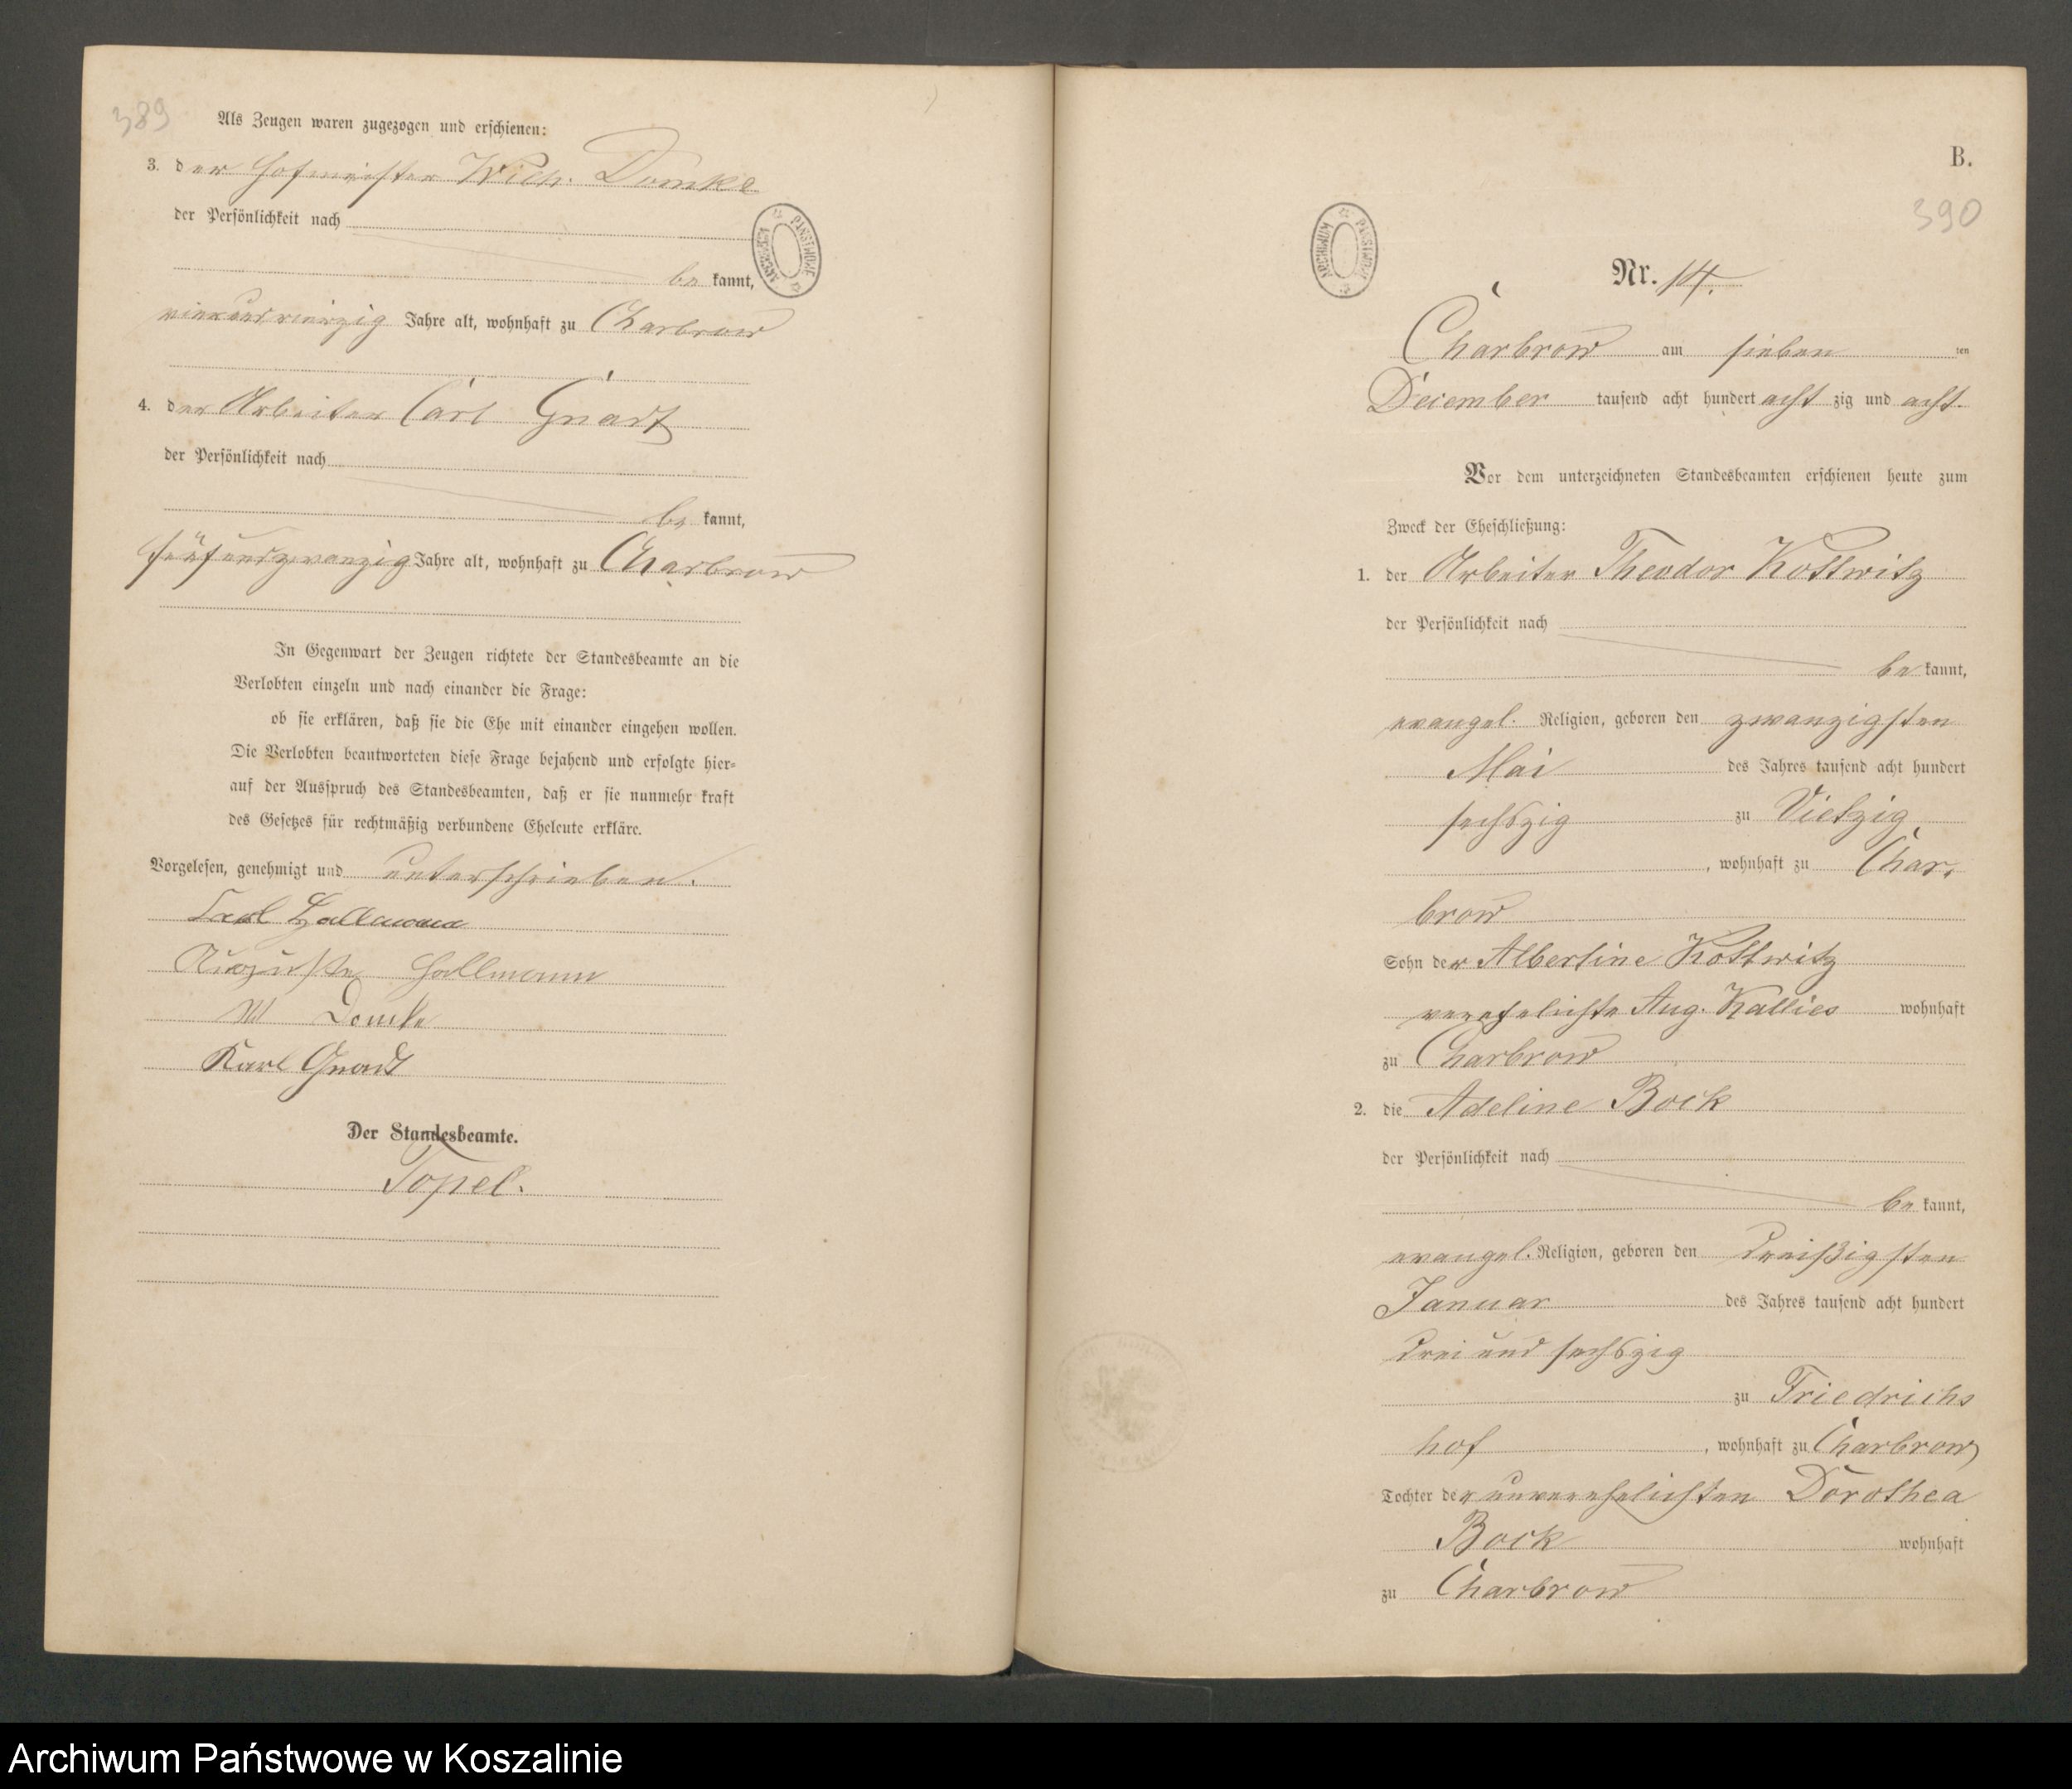 389
Als Zeugen waren zugezogen und erschienen:
3. der Hofmeister Wilh. Domke
der Persönlichkeit nach
be kannt,
vierundvierzig Jahre alt, wohnhaft zu Charbrow
4. der Arbeiter Carl Gnadt
der Persönlichkeit nach
be kannt,
fünfundzwanzig Jahre alt, wohnhaft zu Charbrow
In Gegenwart der Zeugen richtete der Standesbeamte an die
Verlobten einzeln und nach einander die Frage:
ob sie erklären, daß sie die Ehe mit einander eingehen wollen.
Die Verlobten beantworteten diese Frage bejahend und erfolgte hier=
auf der Ausspruch des Standesbeamten, daß er sie nunmehr kraft
des Gesetzes für rechtmäßig verbundene Eheleute erkläre.
Vorgelesen, genehmigt und unterschrieben.
Carl Hallmann
Auguste Hallmann
W Domke
Karl Gnadt
Der Standesbeamte.
Topel.
ARCHIWUM PAŃSTWOWE
B.
390
ARCHIWUM PAŃSTWOWE
Nr. 14.
Charbrow am sieben ten
December tausend acht hundert acht zig und acht.
Vor dem unterzeichneten Standesbeamten erschienen heute zum
Zweck der Eheschließung:
1. der Arbeiter Theodor Kottwitz
der Persönlichkeit nach
be kannt,
evangel. Religion, geboren den zwanzigsten
Mai des Jahres tausend acht hundert
sechszig zu Vietzig
, wohnhaft zu Char,
brow
Sohn der Albertine Kottwitz
verehelichte Aug. Kallies wohnhaft
zu Charbrow
2. die Adeline Bock
der Persönlichkeit nach
be kannt,
evangel. Religion, geboren den dreißigsten
Januar des Jahres tausend acht hundert
drei und sechszig
zu Friedrichs
hof , wohnhaft zu Charbrow
Tochter der unverehelichten Dorothea
Bock wohnhaft
zu Charbrow
Archiwum Państwowe w Koszalinie